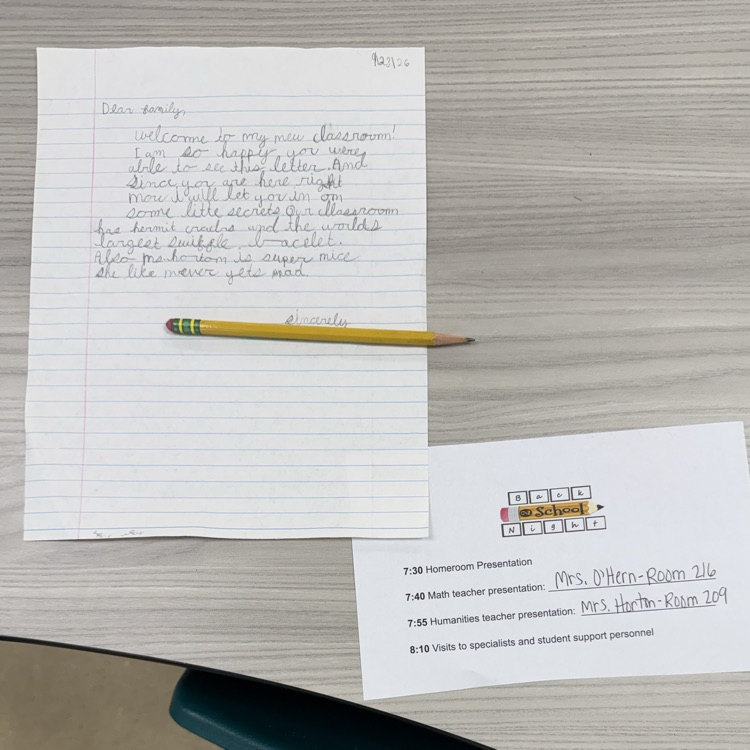 9/23/26
Dear family,
Welcome to my new classroom!
I am so happy you were
able to see this letter. And
since you are here right
now i will let you in on
some litte secrets. Our classroom
has hermit crabs and the worlds
largest bracelet.
Also ms.horton is super nice
she like never gets mad.
sincerely
Back
to School
Night
7:30 Homeroom Presentation
7:40 Math teacher presentation: Mrs. O'Hern-Room 216
7:55 Humanities teacher presentation: Mrs. Horton-Room 209
8:10 Visits to specialists and student support personnel